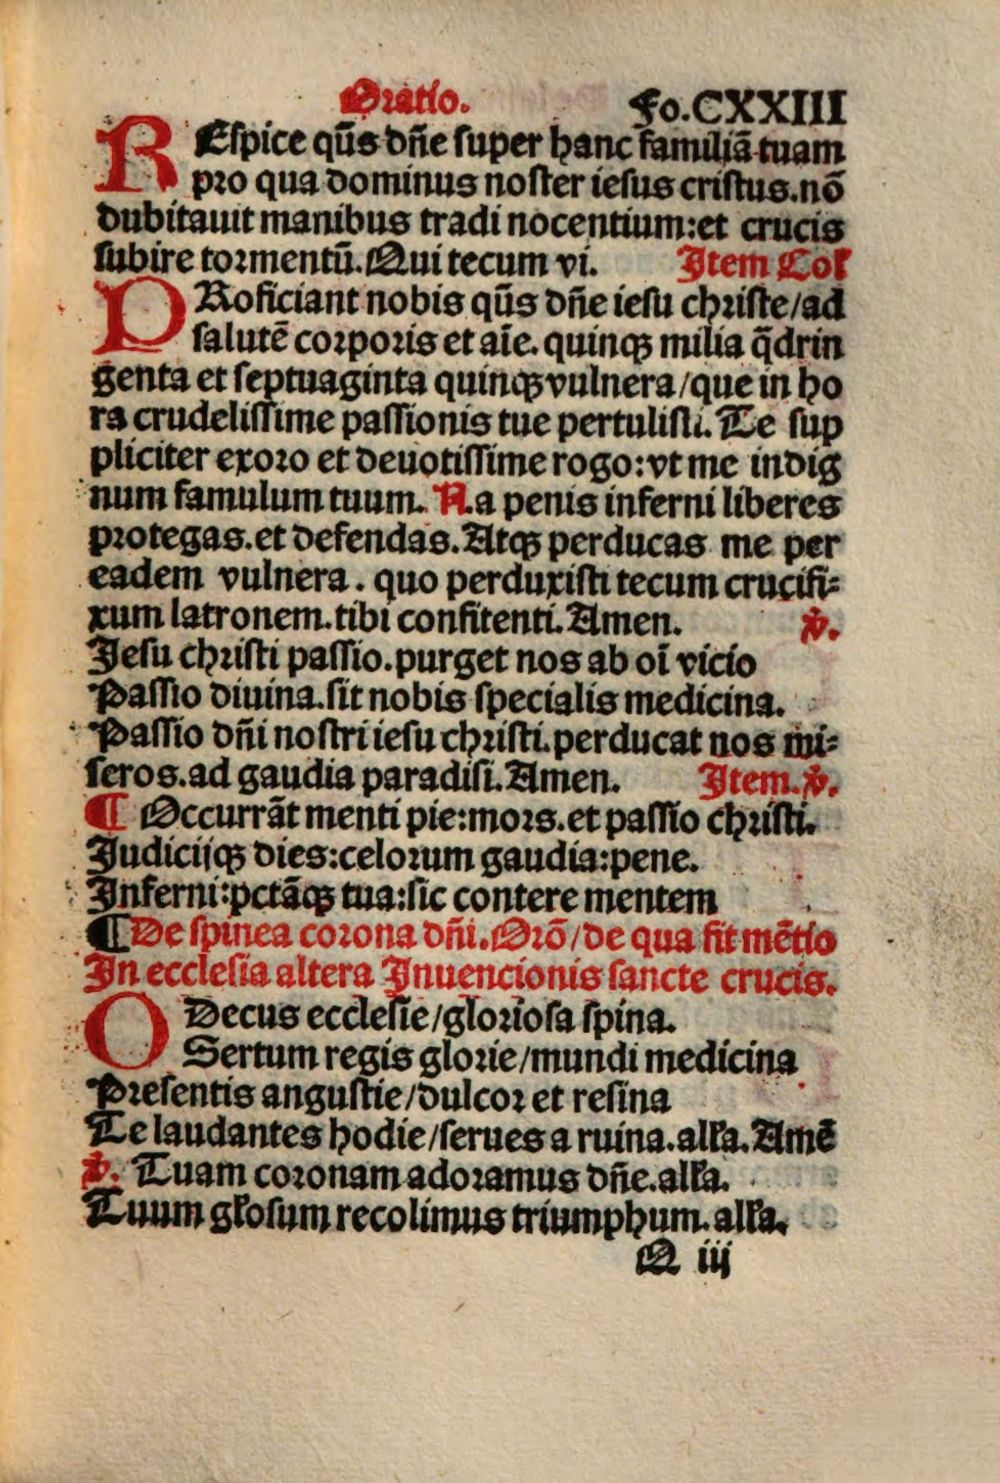 Oratio. Fo.CXXIII
REspice qūs dn̄e super hanc familiā tuam
pro qua dominus noster iesus cristus.nō
dubitauit manibus tradi nocentium:et crucis
subire tormentū.Qui tecum vi. Item Coł
PRoficiant nobis qūs dn̄e iesu christe/ad
salutē corporis et aīe.quinqꝫ milia q̄drin
genta et septuaginta quinqꝫ vulnera/que in ho
ra crudelissime passionis tue pertulisti.Te sup
pliciter exoro et deuotissime rogo:vt me indig
num famulum tuum.N.a penis inferni liberes
protegas.et defendas.Atqꝫ perducas me per
eadem vulnera.quo perduxisti tecum crucifi⸗
xum latronem.tibi confitenti.Amen. ꝟ.
Jesu christi passio.purget nos ab oī vicio
Passio diuina.sit nobis specialis medicina.
Passio dn̄i nostri iesu christi.perducat nos mi⸗
seros.ad gaudia paradisi.Amen. Item.ꝟ.
¶ Occurrāt menti pie:mors.et passio christi.
Judicijqꝫ dies:celorum gaudia:pene.
Inferni:pctāqꝫ tua:sic contere mentem
¶De spinea corona dn̄i.Orō/de qua fit mētio
In ecclesia altera Inuencionis sancte crucis.
O Decus ecclesie/gloriosa spina.
Sertum regis glorie/mundi medicina
Presentis angustie/dulcor et resina
Te laudantes hodie/serues a ruina.ałła.Amē
ꝟ. Tuam coronam adoramus dn̄e.ałła.
Tuum głosum recolimus triumphum.ałła.
Q iij